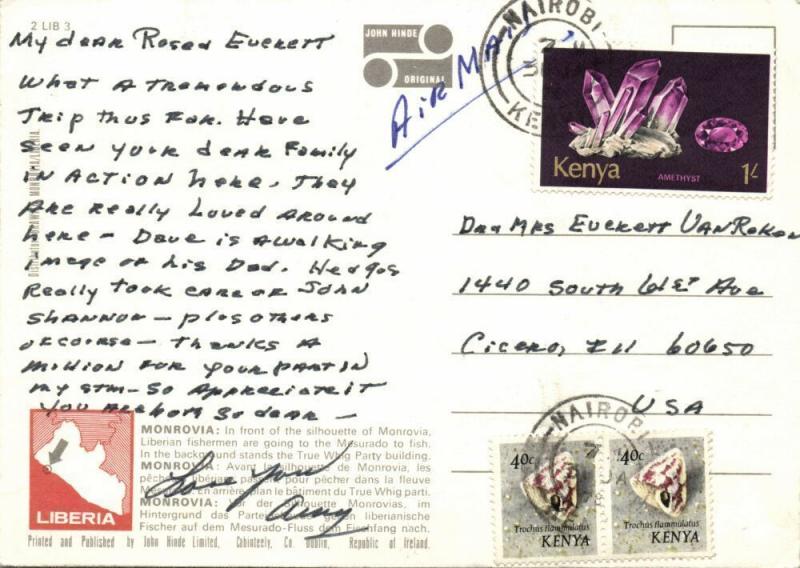 2 LIB 3
My dear Rosed Everett
What a Tremendous
Trip thus far. Have
seen your dear Family
in action here. They
are really Loved around
here - Dave is a walking
image of his Dad. Hedges
Really took care of John
Shannon - plos others
of course - Thanks a
million for your part in
my stm - so appreciate it
You are both so dear -
Love you
JOHN HINDE
ORIGINAL
AiR MAil
NAIROBI
KENYA
Kenya
AMETHYST
1/-
D and Mrs Everett Van Reken
1440 South 61st Ave
Cicero, Ill 60650
USA
NAIROBI
40c
Trochus flammulatus
KENYA
40c
Trochus flammulatus
KENYA
LIBERIA
MONROVIA: In front of the silhouette of Monrovia,
Liberian fishermen are going to the Mesurado to fish.
In the background stands the True Whig Party building.
MONROVIA: Avant la silhouette de Monrovia, les
pêcheurs libériens passent pour pêcher dans la fleuve
Mesurado. En arrière plan le bâtiment du True Whig parti.
MONROVIA: Vor der Silhouette Monrovias, im
Hintergrund das Parteihaus, gehen liberianische
Fischer auf dem Mesurado-Fluss dem Fischfang nach.
Printed and Published by John Hinde Limited, Cabinteely, Co. Dublin, Republic of Ireland.